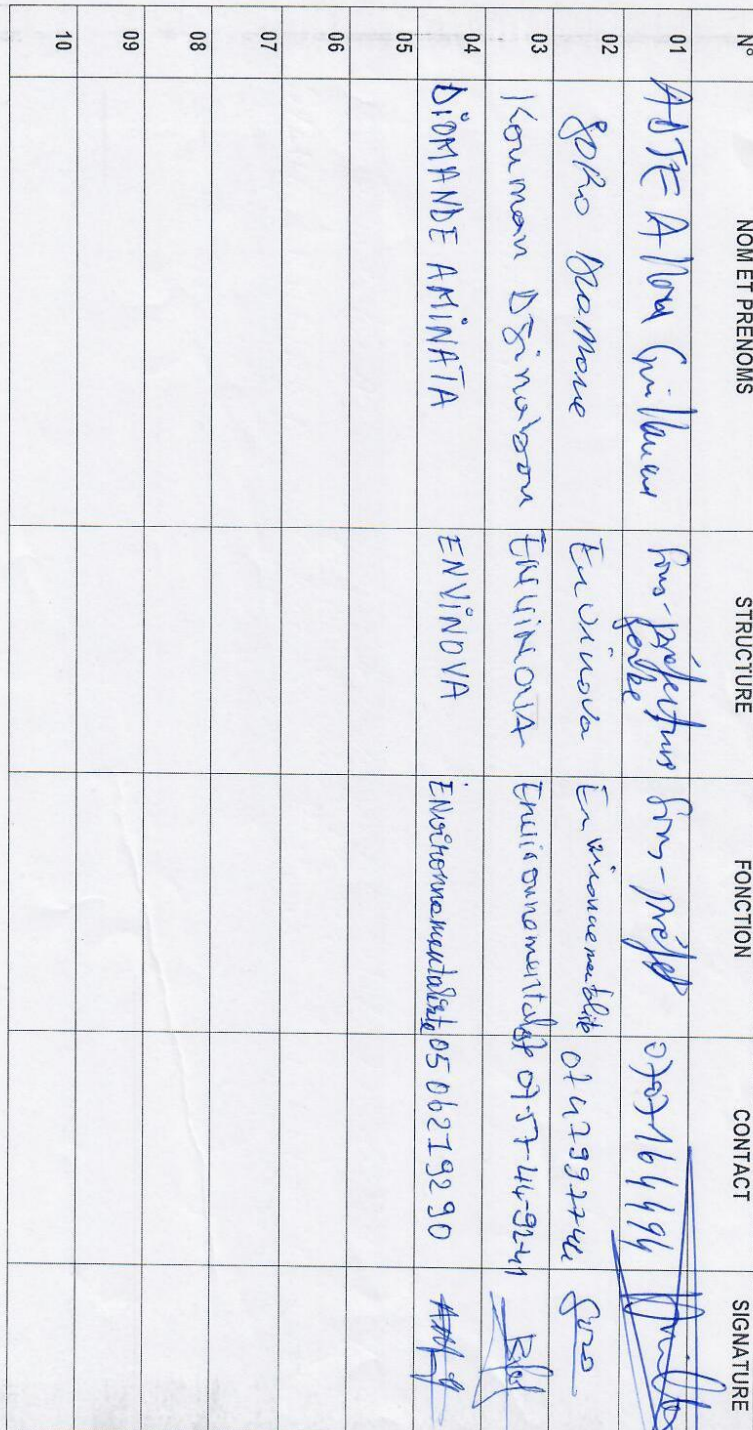 N° NOM ET PRENOMS STRUCTURE FONCTION CONTACT SIGNATURE
01 ADJE A Guillaume Sous-préfecture Sous-préfet 0707164494
02 Soro Dramane Envinova Environnementaliste 0747997744 Soro
03 Kouman ENVINOVA Environnementaliste 07-57-44-92-41
04 DIOMANDE AMINATA ENVINOVA ENvironnementaliste 0506279290
05
06
07
08
09
10